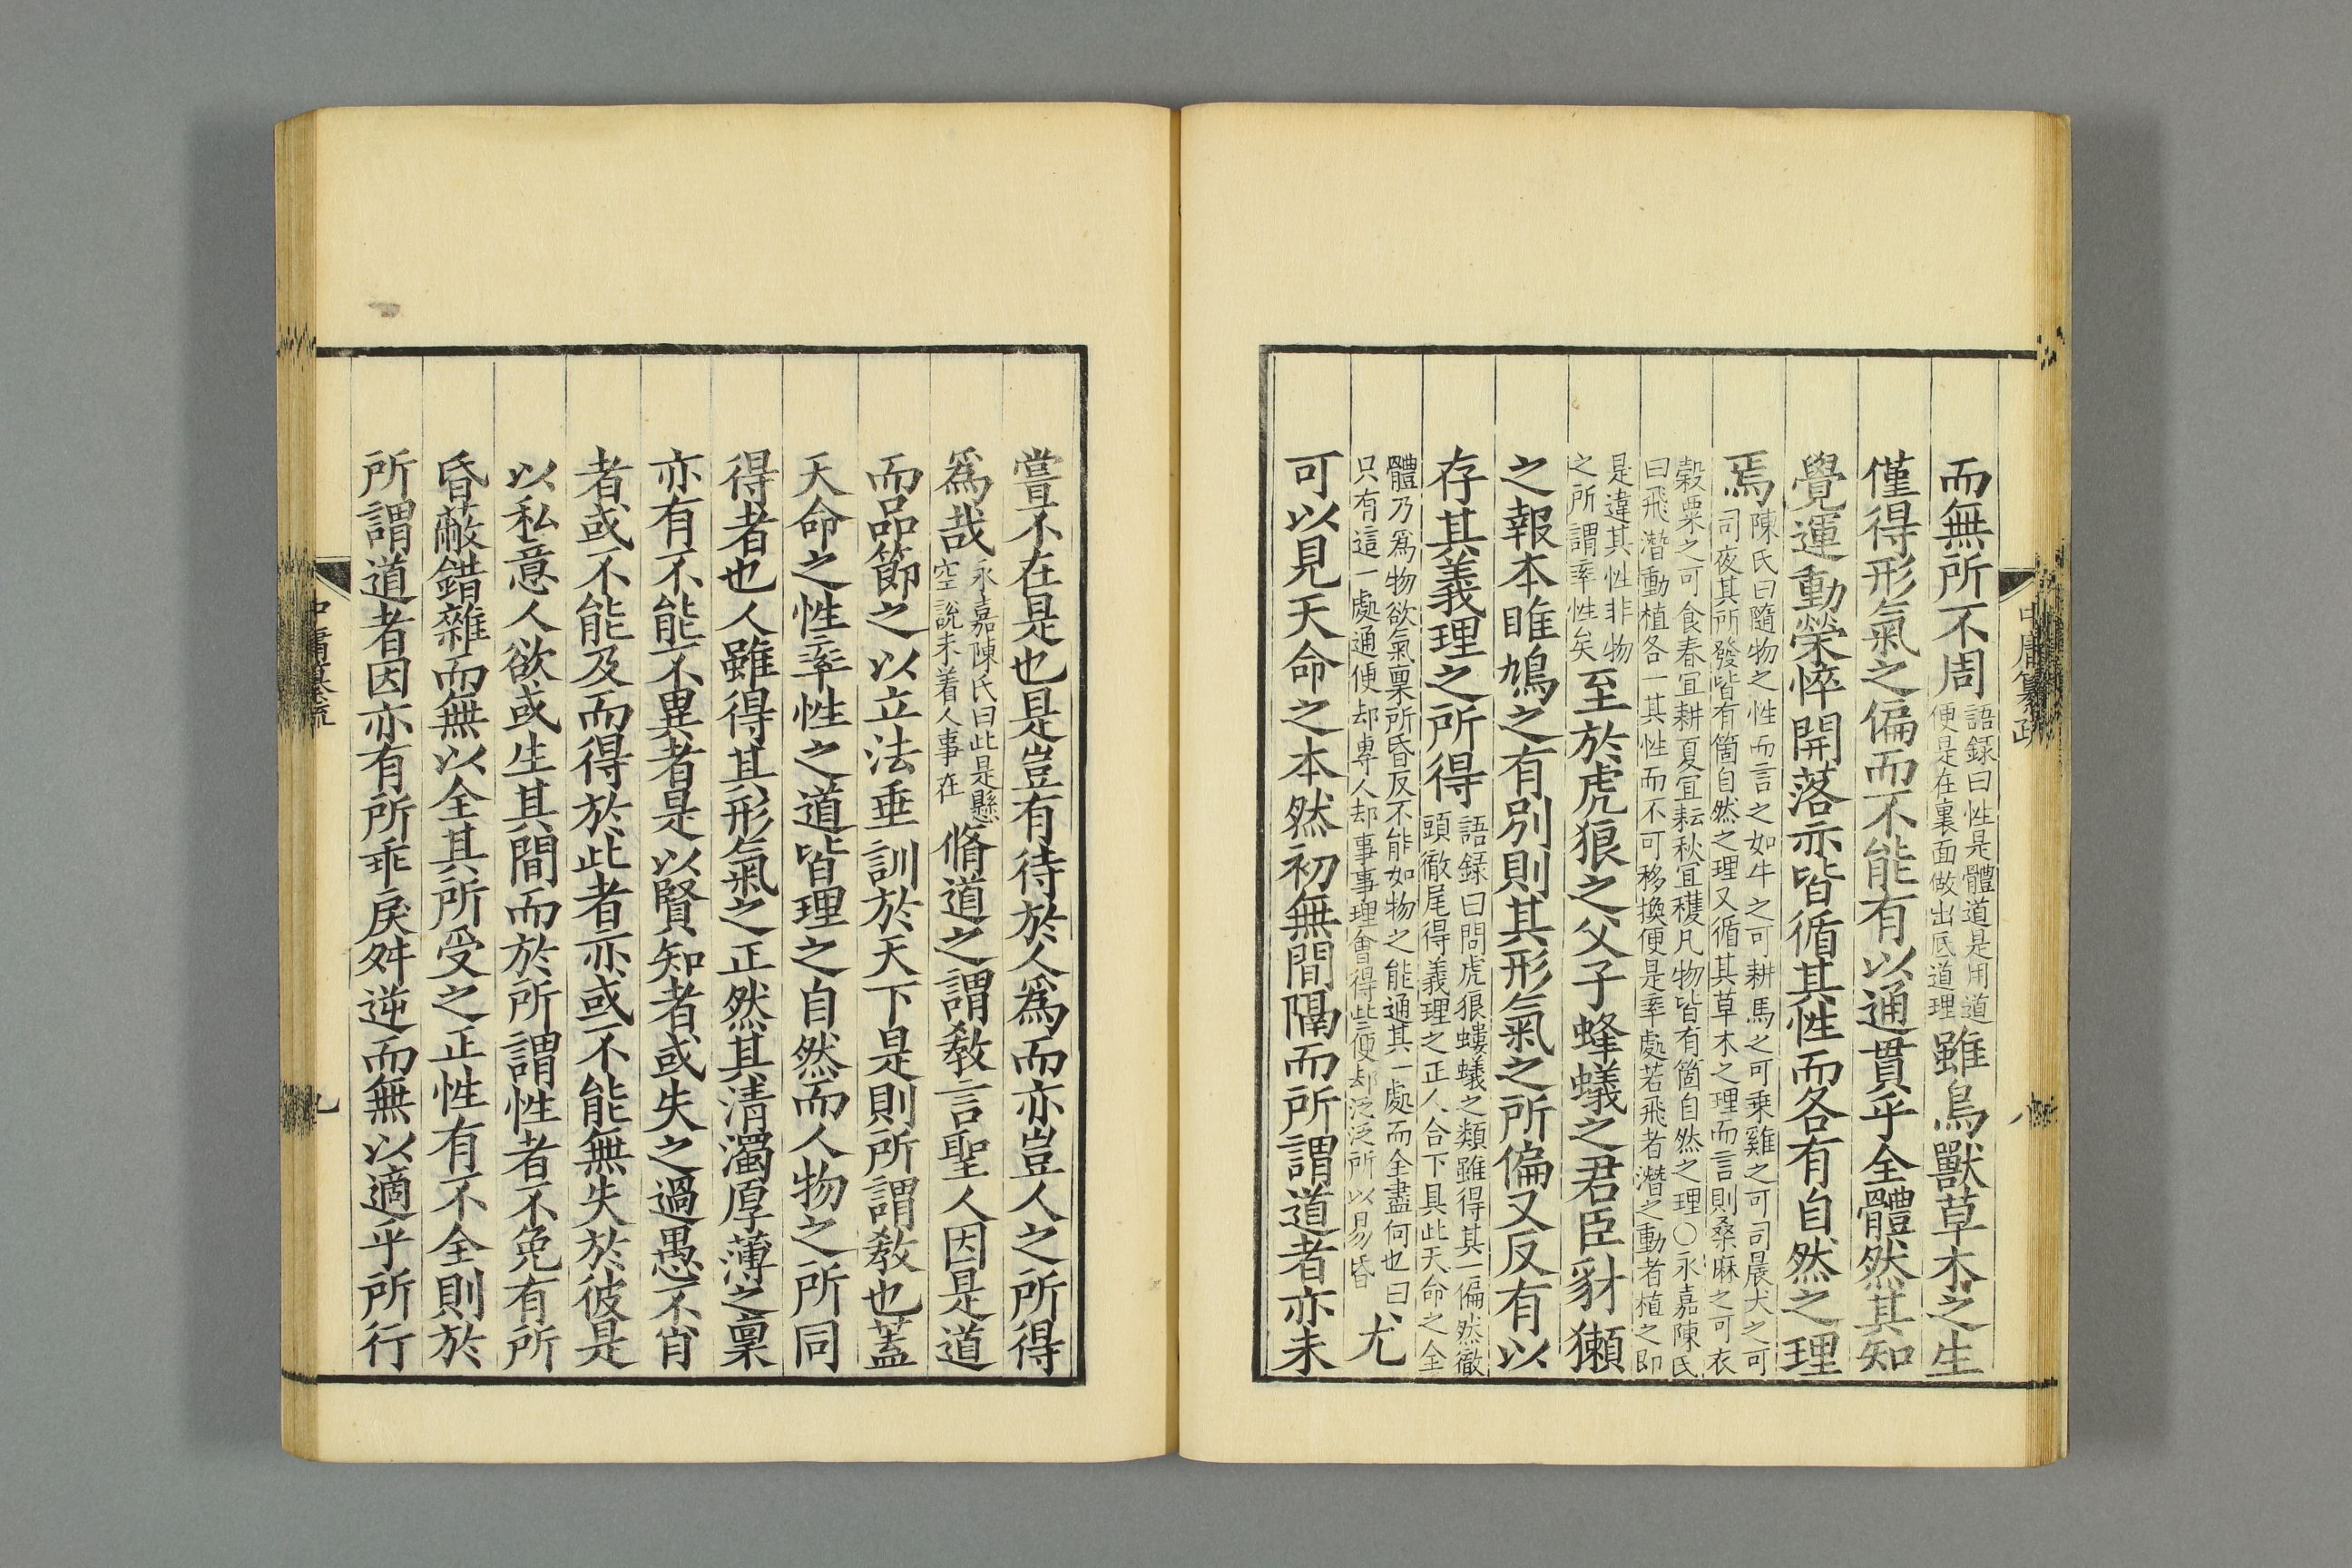 中庸纂疏
八
而無所不周
語録曰性是體道是用道
便是在裏面做出底道理
雖鳥獸草木之生
僅得形氣之偏而不能有以通貫乎全體然其知
覺運動榮悴開落亦皆循其性而各有自然之理
焉
陳氏曰隨物之性而言之如牛之可耕馬之可乗雞之可司晨犬之可
司夜其所發皆有箇自然之理又循其草木之理而言則桑麻之可衣
穀粟之可食春宜耕夏宜耘秋宜穫凡物皆有箇自然之理○永嘉陳氏
曰飛潛動植各一其性而不可移換便是率處若飛者潛之動者植之即
是違其性非物
之所謂率性矣
至於虎狼之父子蜂蟻之君臣豺獺
之報本雎鳩之有別則其形氣之所偏又反有以
存其義理之所得
語録曰問虎狼螻蟻之類雖得其一偏然徹
頭徹尾得義理之正人合下具此天命之全
體乃爲物欲氣稟所昏反不能如物之能通其一處而全盡何也曰
只有這一處通便却専人却事事理會得些便却泛泛所以易昏
尤
可以見天命之本然初無間隔而所謂道者亦未
嘗不在是也是豈有待於人爲而亦豈人之所得
爲哉
永嘉陳氏曰此是懸
空說未着人事在
脩道之謂教言聖人因是道
而品節之以立法垂訓於天下是則所謂教也蓋
天命之性率性之道皆理之自然而人物之所同
得者也人雖得其形氣之正然其清濁厚薄之稟
亦有不能不異者是以賢知者或失之過愚不肖
者或不能及而得於此者亦或不能無失於彼是
以私意人欲或生其間而於所謂性者不免有所
昏蔽錯雜而無以全其所受之正性有不全則於
所謂道者因亦有所乖戾舛逆而無以適乎所行
中庸纂疏
九